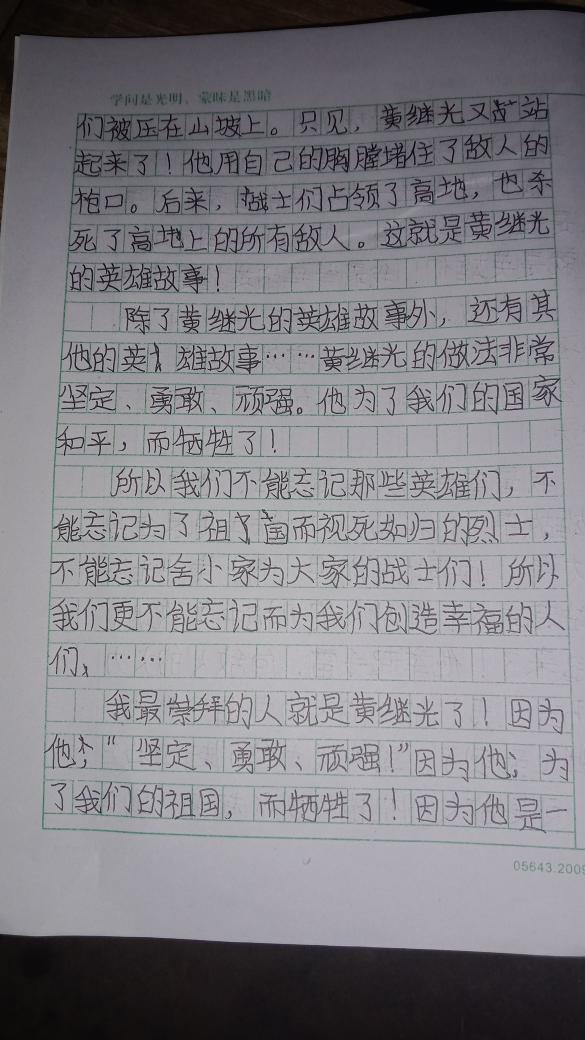 学问是光明，蒙昧是黑暗
们被压在山坡上。只见，黄继光又站
起来了！他用自己的胸膛堵住了敌人的
枪口。后来，战士们占领了高地，也杀
死了高地上的所有敌人。这就是黄继光
的英雄故事！
除了黄继光的英雄故事外，还有其
他的英雄故事……黄继光的做法非常
坚定、勇敢、顽强。他为了我们的国家
和平，而牺牲了！
所以我们不能忘记那些英雄们，不
能忘记为了祖国而视死如归的烈士，
不能忘记舍小家为大家的战士们！所以
我们更不能忘记而为我们创造幸福的人
们，……
我最崇拜的人就是黄继光了！因为
他；“坚定、勇敢、顽强！”因为他；为
了我们的祖国，而牺牲了！因为他是一
05643.2009